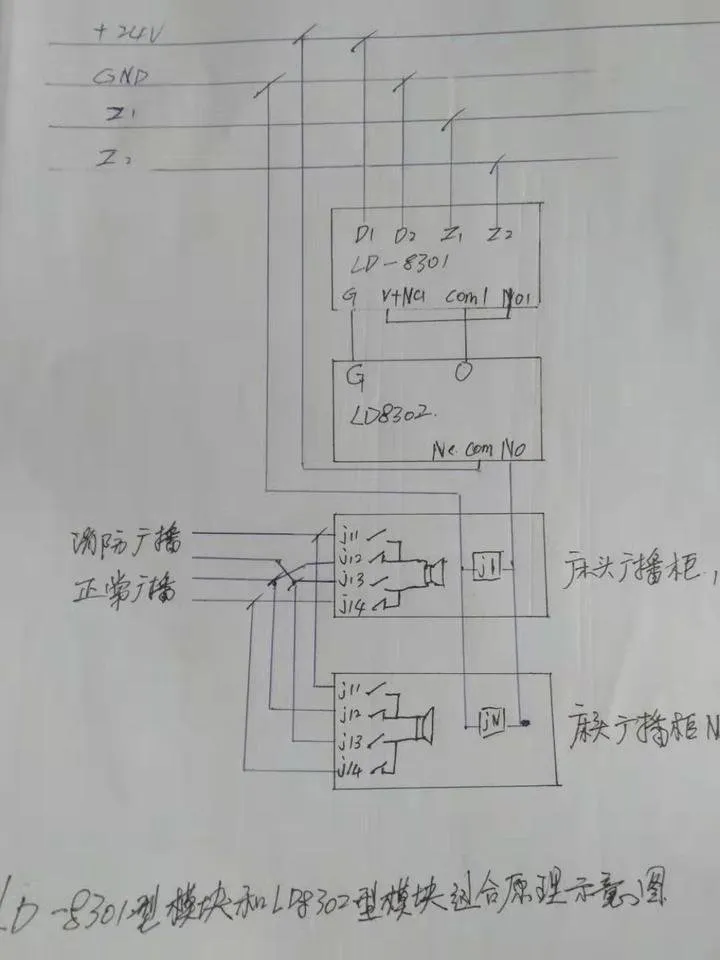 +24V
GND
Z1
Z2
D1 D2 Z1 Z2
LD-8301
G V+NC1 COM1 NO1
G O
LD8302.
Nc. com No
消防广播
正常广播
j11
j12
j13
j14
j1
床头广播柜1
j11
j12
j13
j14
jN
床头广播柜N
LD-8301型模块和LD8302型模块组合原理示意图